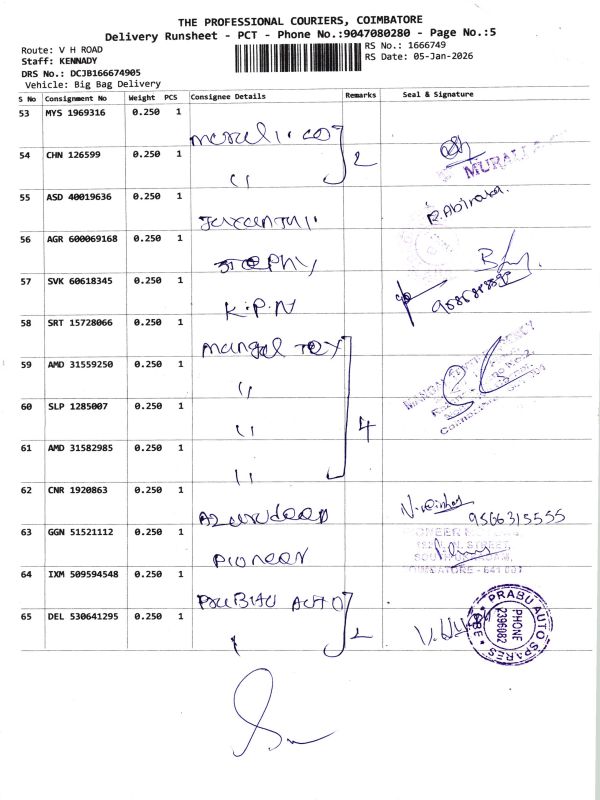 THE PROFESSIONAL COURIERS, COIMBATORE
Delivery Runsheet - PCT - Phone No.:9047080280 - Page No.:5
Route: V H ROAD
Staff: KENNADY
DRS No.: DCJB166674905
Vehicle: Big Bag Delivery
RS No.: 1666749
RS Date: 05-Jan-2026
S No Consignment No Weight PCS Consignee Details Remarks Seal & Signature
53 MYS 1969316 0.250 1
54 CHN 126599 0.250 1 " 2
55 ASD 40019636 0.250 1 R.Abirama.
56 AGR 600069168 0.250 1
57 SVK 60618345 0.250 1 K.P.N
58 SRT 15728066 0.250 1 mangal Tex
59 AMD 31559250 0.250 1 "
60 SLP 1285007 0.250 1 " 4
61 AMD 31582985 0.250 1 "
62 CNR 1920863 0.250 1 9566315555
63 GGN 51521112 0.250 1 Pioneer
COIMBATORE - 641 001
64 IXM 509594548 0.250 1 PRABHU AUTO
65 DEL 530641295 0.250 1 2
PRABU AUTO SPARES
CBE
PHONE
2396082